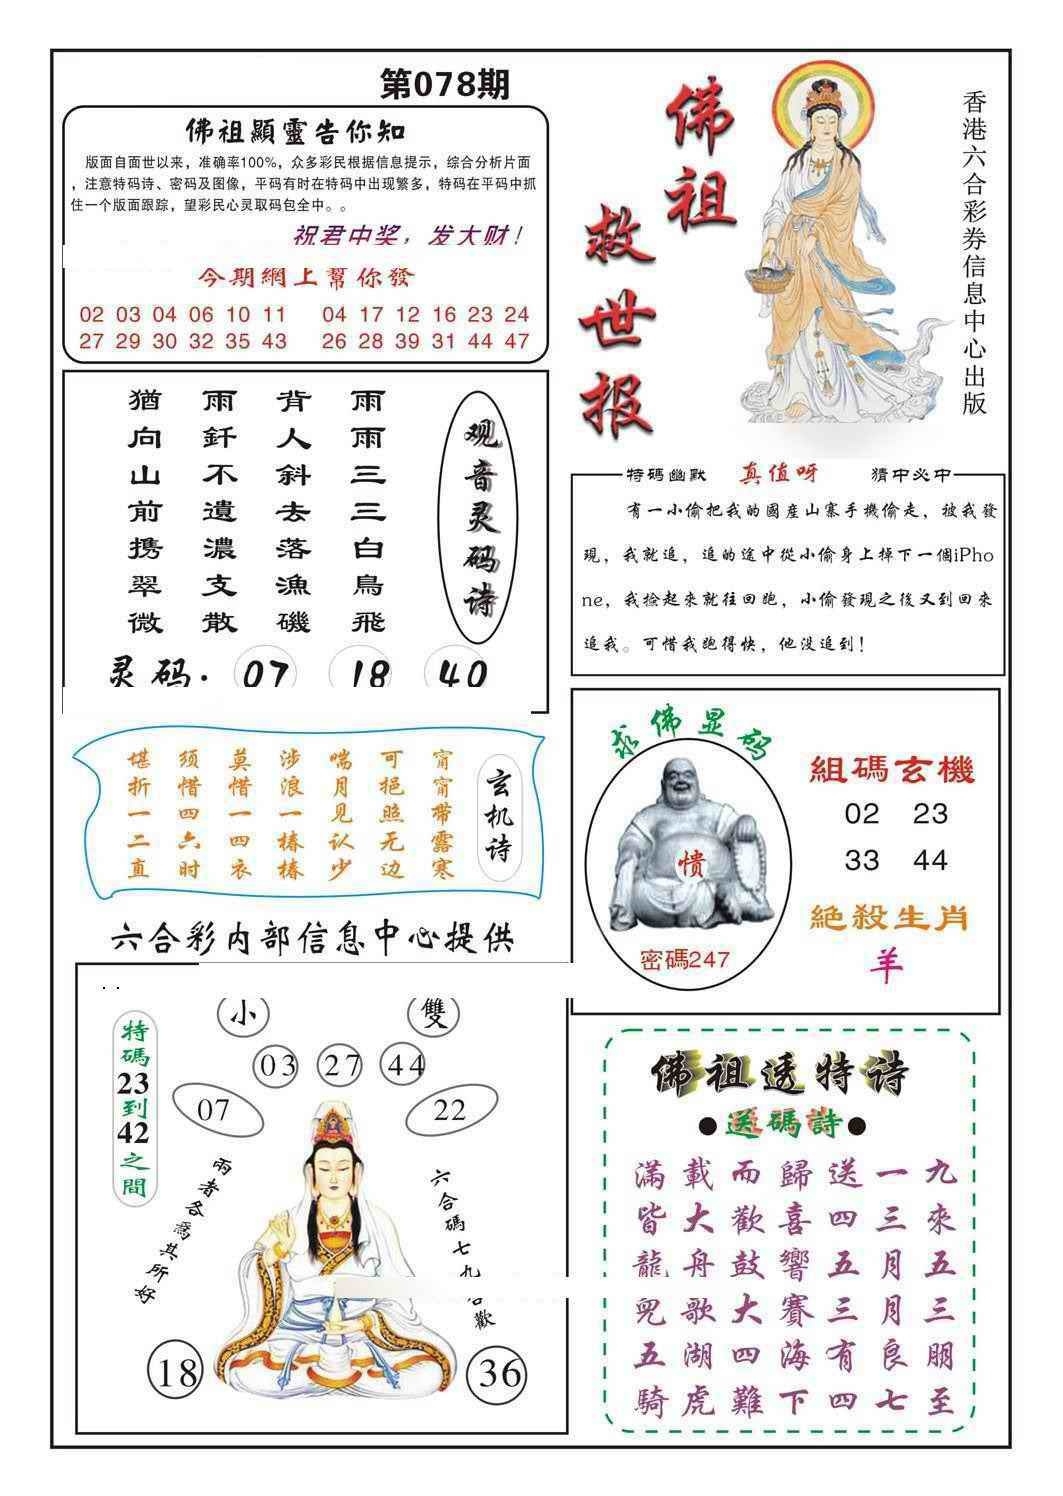 第078期
佛祖顯靈告你知
版面自面世以来，准确率100%，众多彩民根据信息提示，综合分析片面
，注意特码诗、密码及图像，平码有时在特码中出现繁多，特码在平码中抓
住一个版面跟踪，望彩民心灵取码包全中。。
祝君中奖，发大财！
今期網上幫你發
02 03 04 06 10 11 04 17 12 16 23 24
27 29 30 32 35 43 26 28 39 31 44 47
佛祖
救世报
香港六合彩券信息中心出版
观音灵码诗
雨雨三三白鳥飛
背人斜去落漁磯
雨釺不遺濃支散
猶向山前携翠微
灵码. 07 18 40
特碼幽默 真值呀 猜中必中
有一小偷把我的國産山寨手機偷走，被我發
現，我就追，追的途中從小偷身上掉下一個iPho
ne，我捡起來就往回跑，小偷發現之後又到回來
追我。可惜我跑得快，他没追到！
玄机诗
甯甯带露寒
可挹照无边
喘月见认少
涉浪一椿椿
莫惜一四衣
须惜四六时
堪折一二直
求佛显码
愤
密碼247
組碼玄機
02 23
33 44
絕殺生肖
羊
六合彩内部信息中心提供
特碼23到42之間
小 雙
03 27 44
07 22
兩者各爲其所好
六合碼七九
歡
18 36
佛祖透特诗
●送碼詩●
滿載而歸送一九
皆大歡喜四三來
龍舟鼓響五月五
兒歌大賽三月三
五湖四海有良朋
騎虎難下四七至